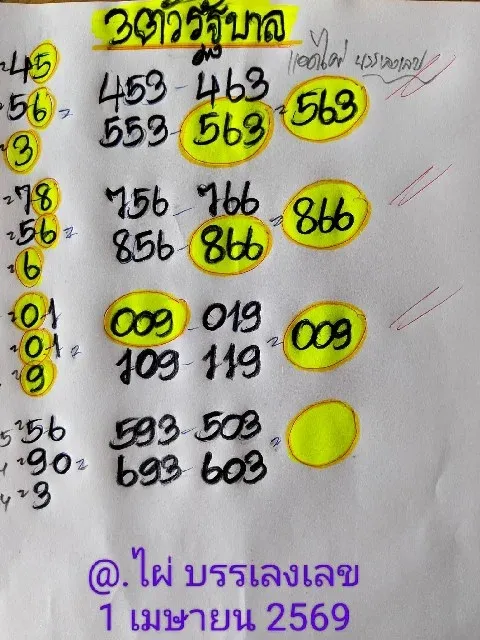 3ตัวรัฐบาล
แอดไผ่ บรรเลงเลข
45
453 - 463
56 =
553 - 563 = 563
3
78
756 - 766
56 =
856 - 866 = 866
6
01
009 - 019
01 =
109 - 119 = 009
9
56
593 - 503
90 =
693 - 603 =
3
@.ไผ่ บรรเลงเลข
1 เมษายน 2569